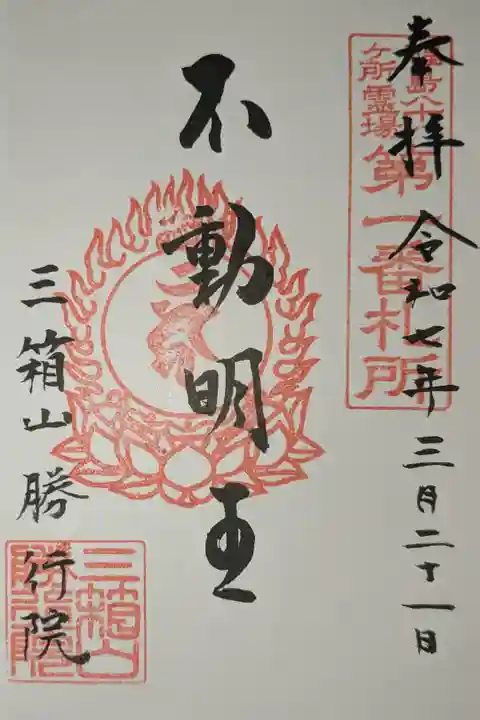 奉拝 令和七年三月二十一日
福島八十八
ケ所霊場
第一番札所
不動明王
三箱山 勝行院
三箱山
勝行院